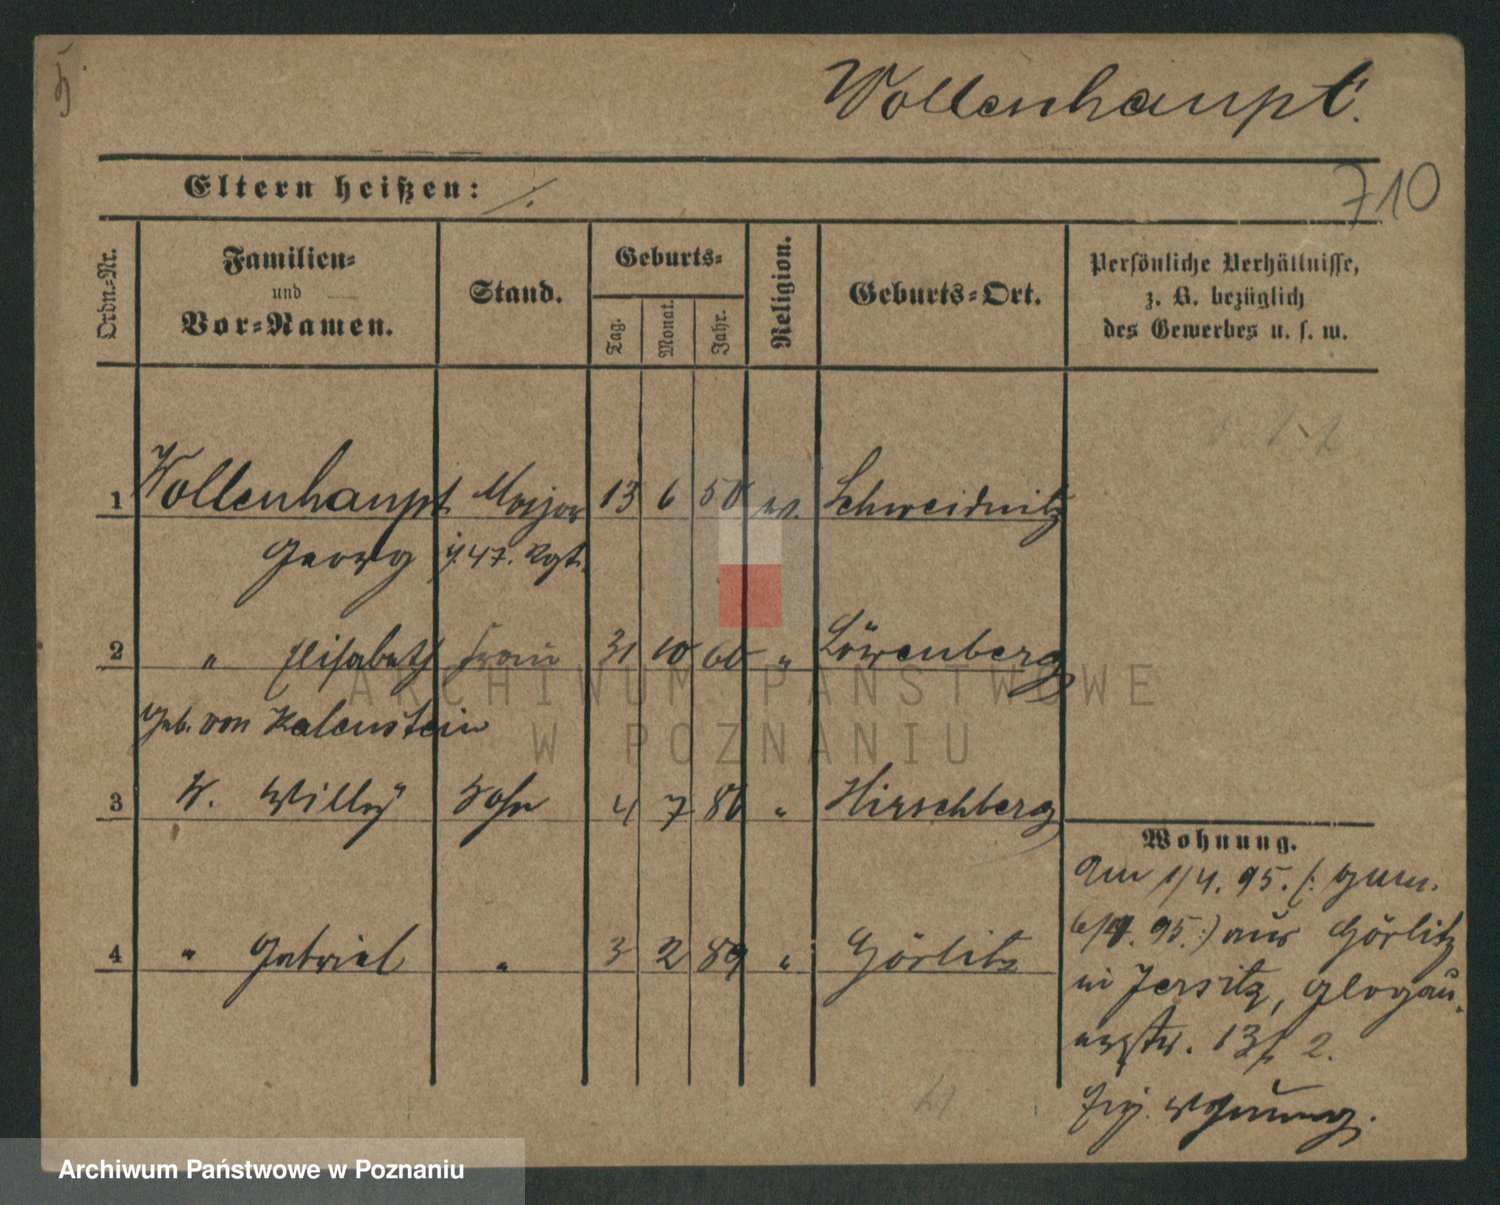 5.
Wollenhaupt.
710
Eltern heißen: ./.
Ordn.-Nr.
Familien-
und
Vor-Namen.
Stand.
Geburts-
Tag.
Monat.
Jahr.
Religion.
Geburts-Ort.
Persönliche Verhältnisse,
z. B. bezüglich
des Gewerbes u. s. w.
1 Wollenhaupt Major 13 6 50 ev. Schweidnitz
Georg i. 47. Rgt.
2 " Elisabeth Frau 31 10 60 " Löwenberg
Geb. von Kalenstein
3 W. Willy Sohn 4 7 86 " Hirschberg
4 " Gabriel " 3 2 89 " Görlitz
Wohnung.
Am 1/4. 95. (: gem.
6/4. 95. :) aus Görlitz
in Jersitz, Glogau-
erstr. 13, 2.
Eig. Wohnung.
ARCHIWUM PAŃSTWOWE
W POZNANIU
Archiwum Państwowe w Poznaniu